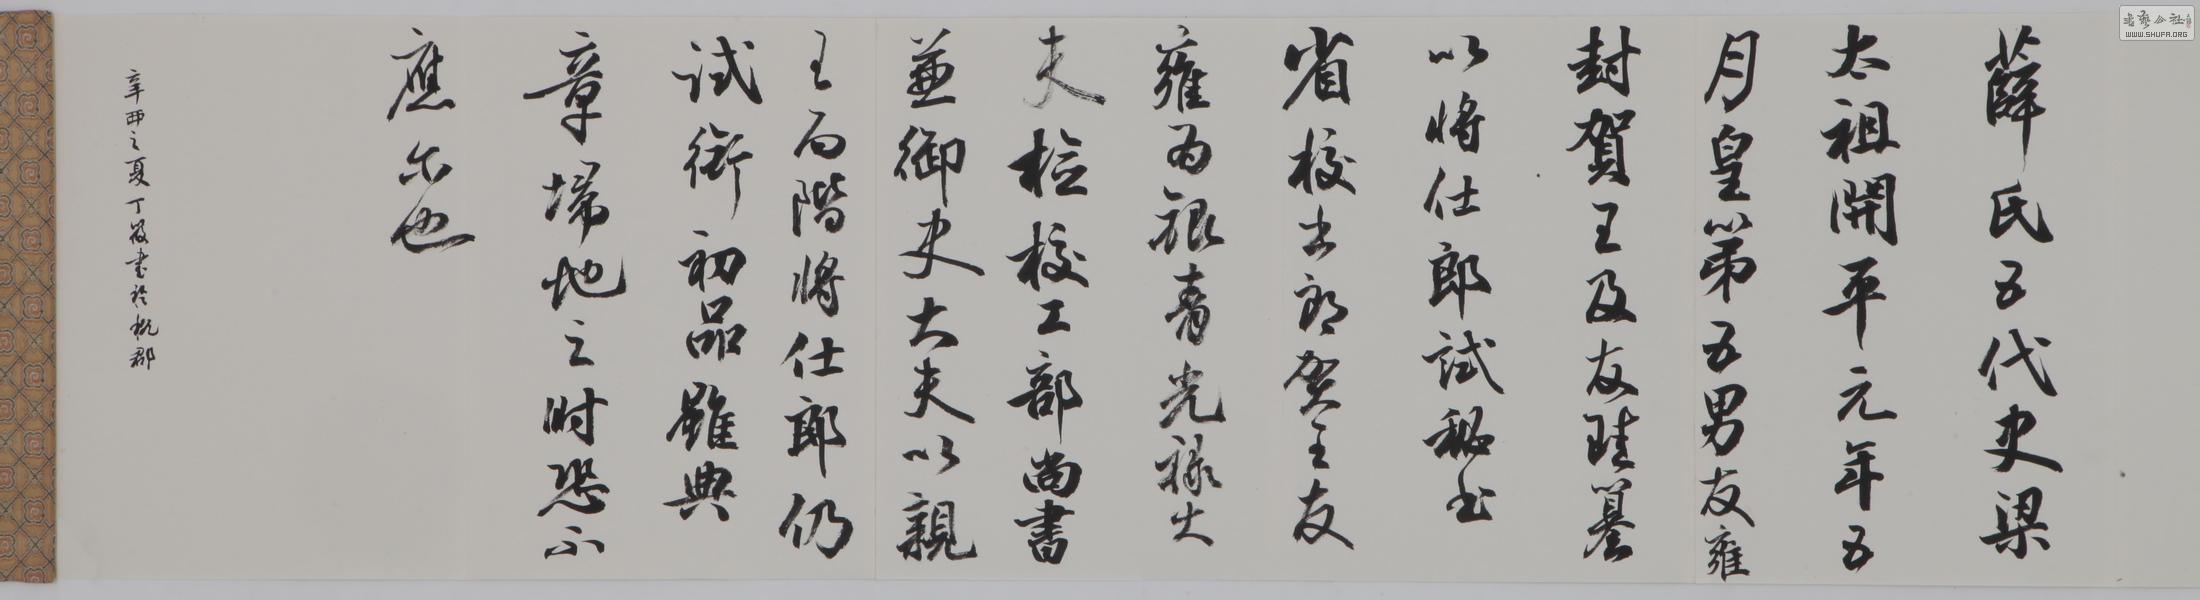 薛氏五代史梁
太祖開平元年五
月皇第五男友雍
封賀王及友珪篡
以將仕郎試秘书
省校书郎賀王友
雍为銀青光祿大
夫檢校工部尚書
兼御史大夫以親
王而階將仕郎仍
試銜初品雖典
章埽地之时恐不
應尔也
辛酉之夏丁筱書於杭郡
书藝公社
WWW.SHUFA.ORG